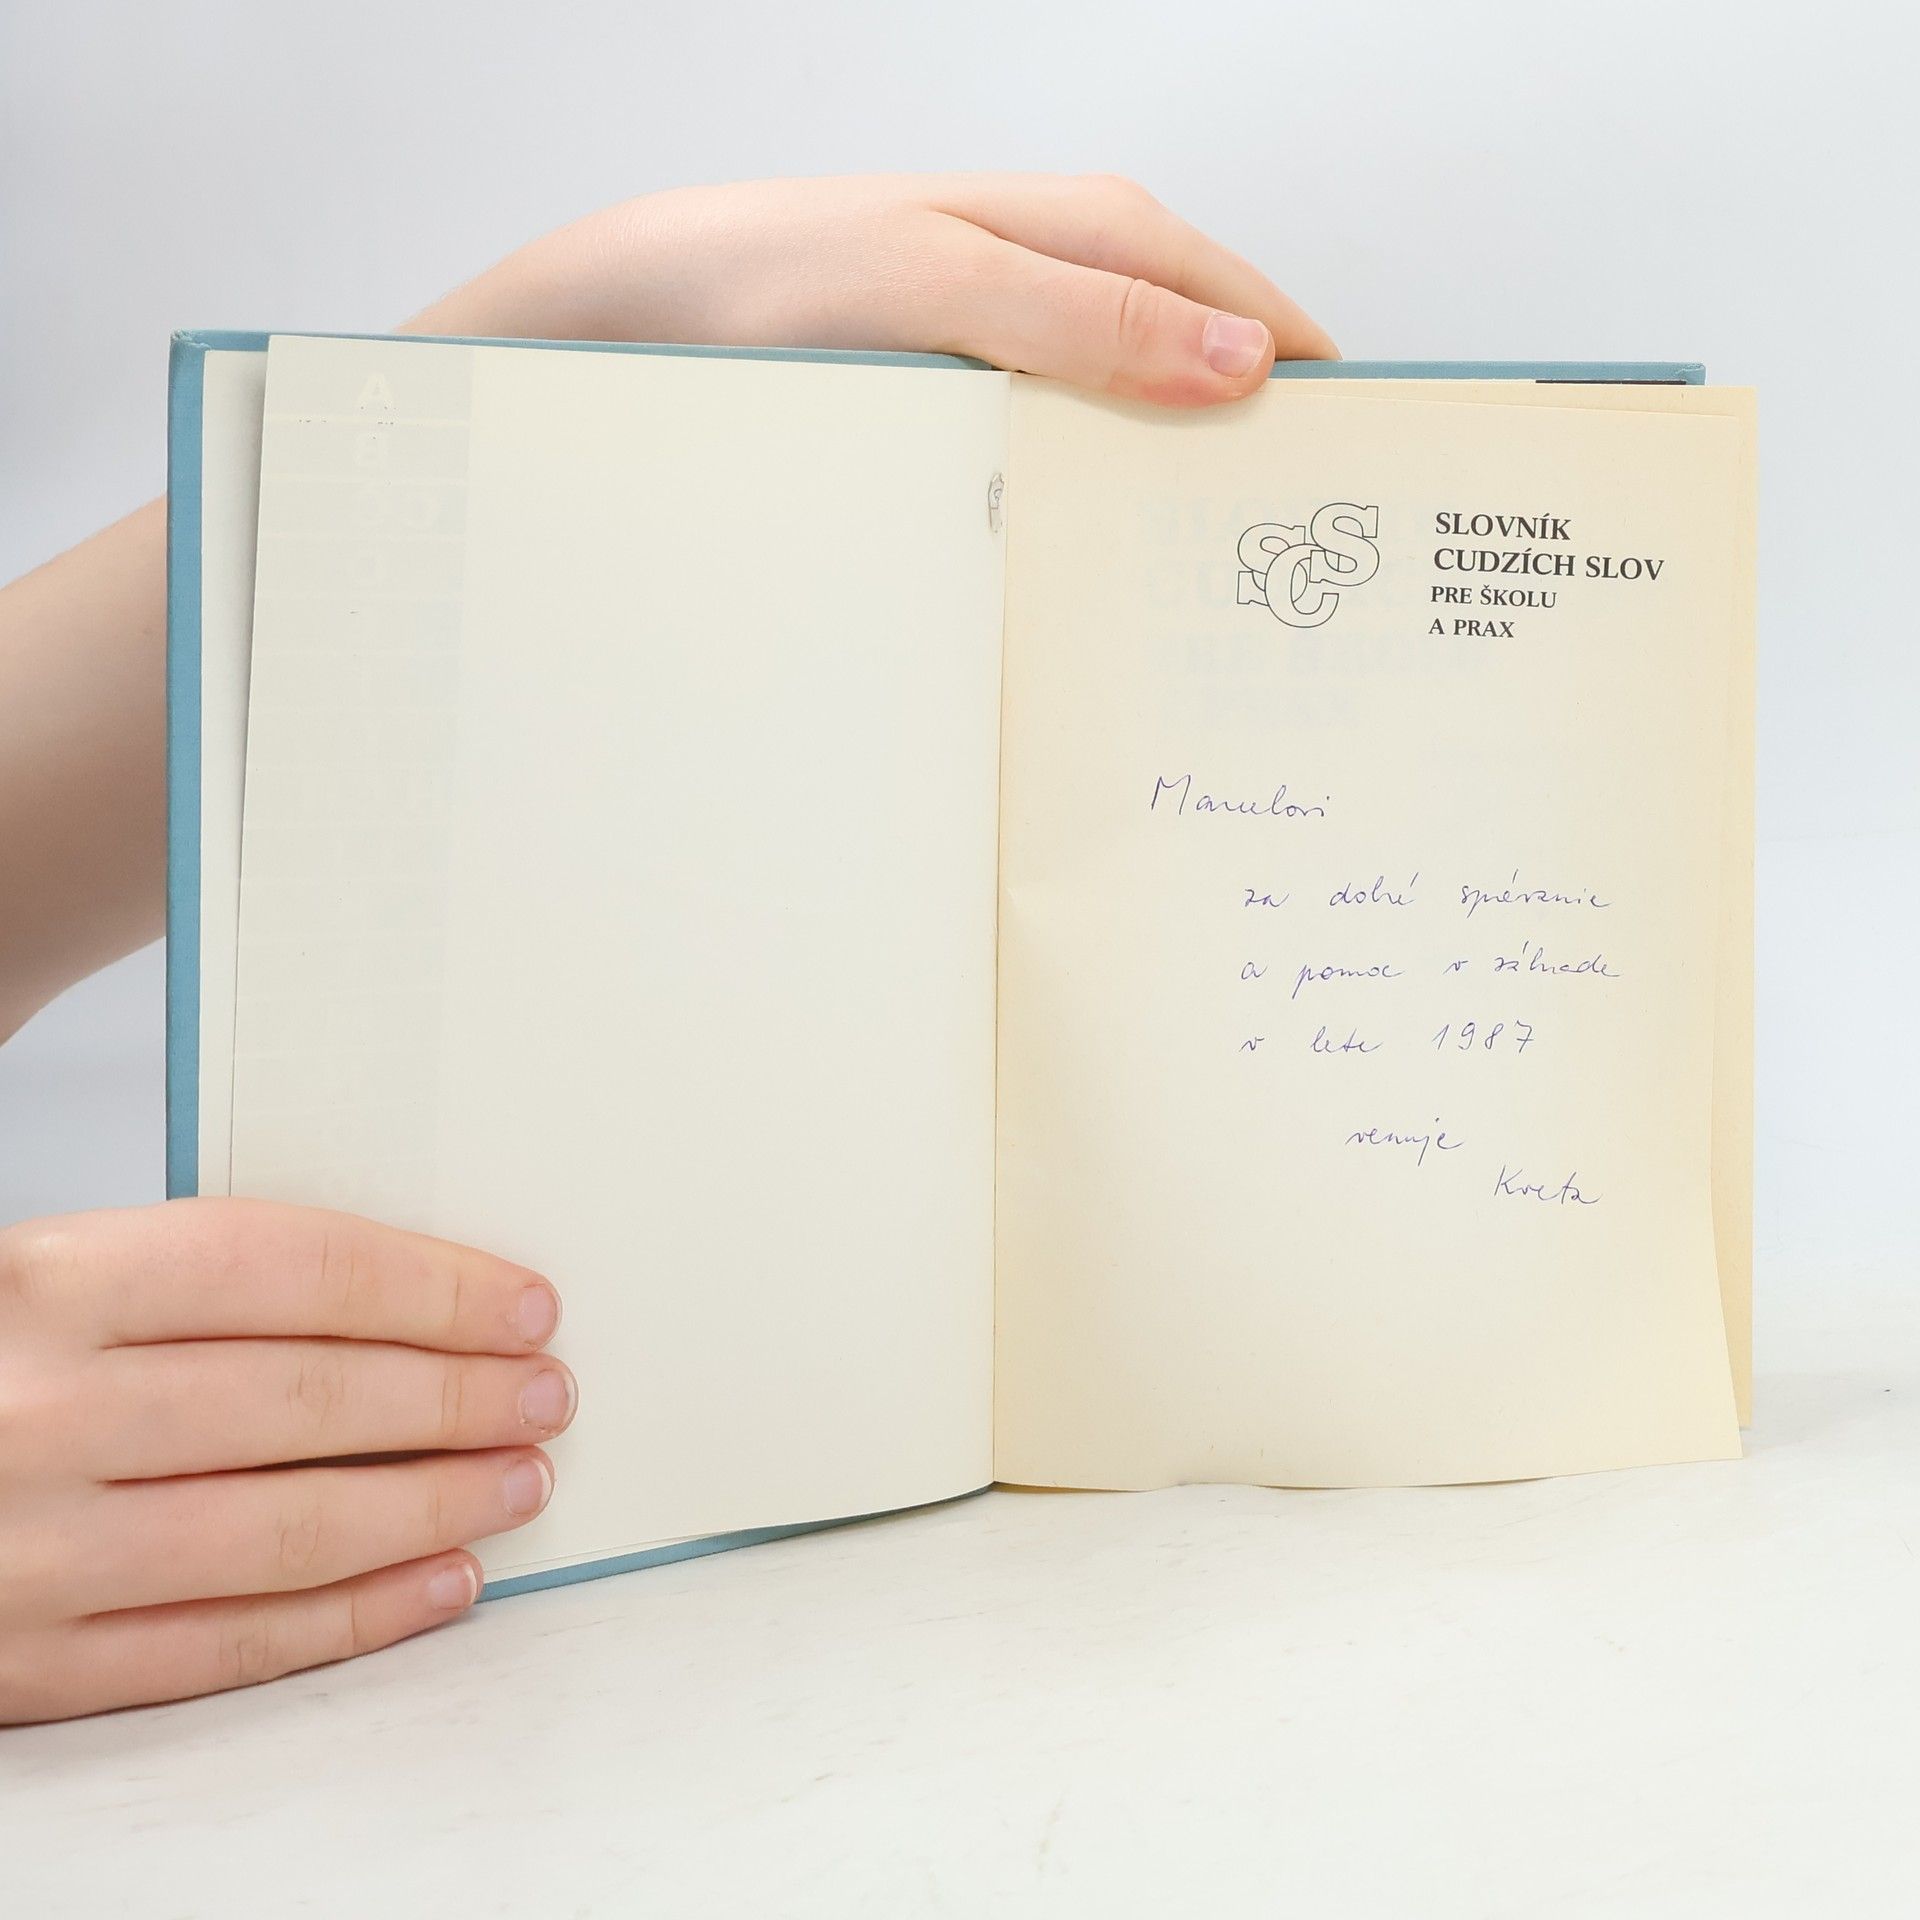 SCS
SLOVNÍK
CUDZÍCH SLOV
PRE ŠKOLU
A PRAX
Marcelovi
za dobré správanie
a pomoc v záhrade
v lete 1987
venuje
Kveta